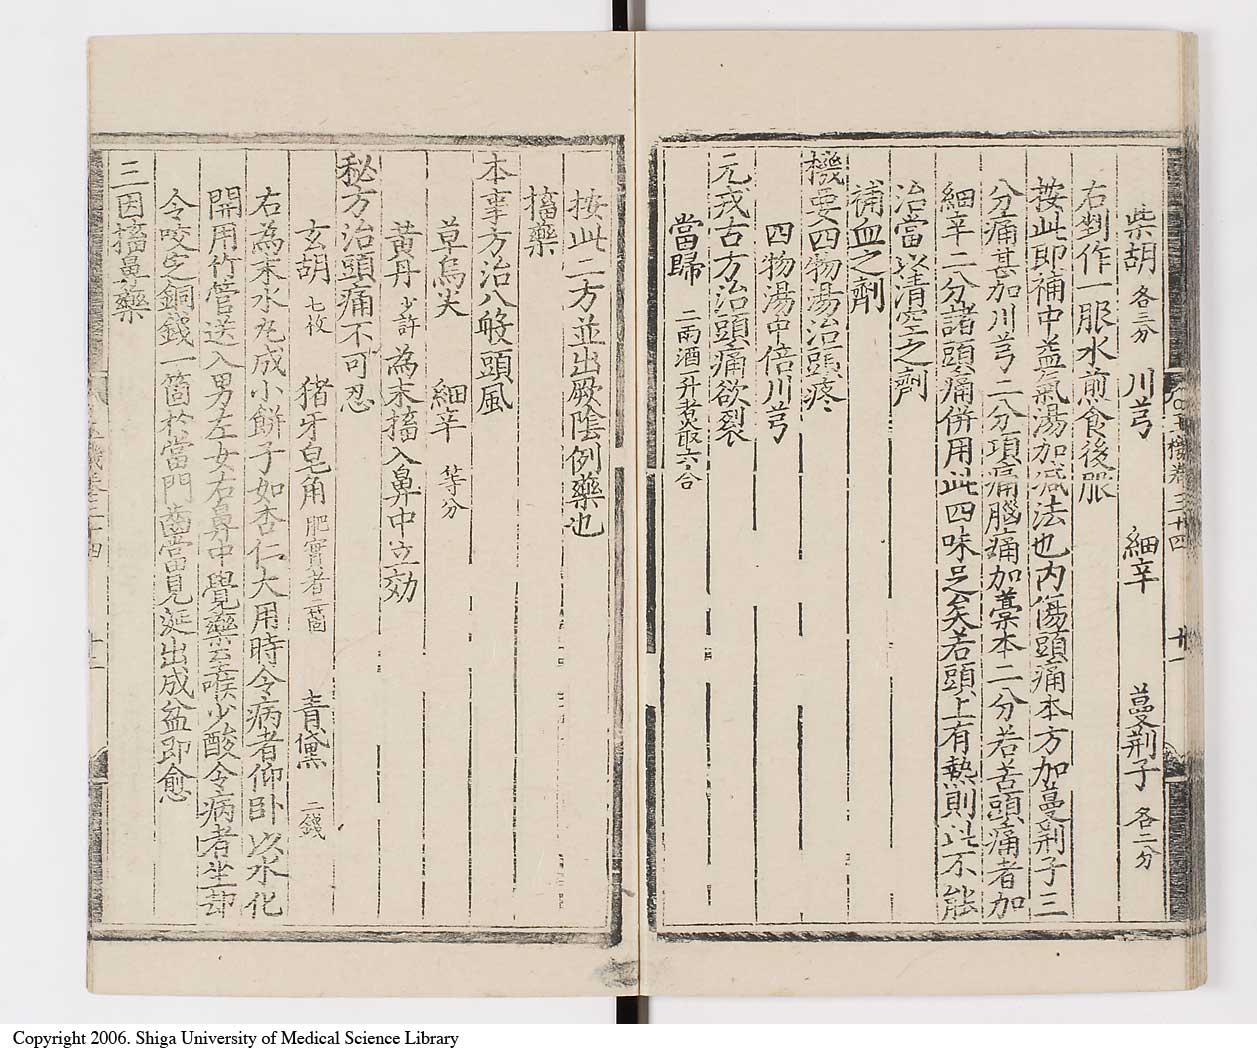 柴胡 各三分 川芎 細辛 蔓荆子 各二分
右剉作一服水煎食後服
按此即補中益氣湯加减法也内傷頭痛本方加蔓荆子三
分痛甚加川芎二分項痛腦痛加藁本二分若苦頭痛者加
細辛二分諸頭痛併用此四味足矣若頭上有熱則此不能
治當以清空之劑
補血之劑
機要四物湯治頭疼
四物湯中倍川芎
元戎古方治頭痛欲裂
當歸 二兩酒一升煮取六合
按此二方並出厥隂例藥也
搐藥
本事方治八般頭風
草烏尖 細辛 等分
黄丹 少許 為末搐入鼻中立効
秘方治頭痛不可忍
玄胡 七枚 猪牙皂角 肥實者二箇 青黛 二錢
右為末水丸成小餅子如杏仁大用時令病者仰卧以水化
開用竹管送入男左女右鼻中覺藥至喉少酸令病者坐却
令咬定銅錢一箇於當門齒當見涎出成盆即愈
三因搐鼻藥
Copyright 2006. Shiga University of Medical Science Library